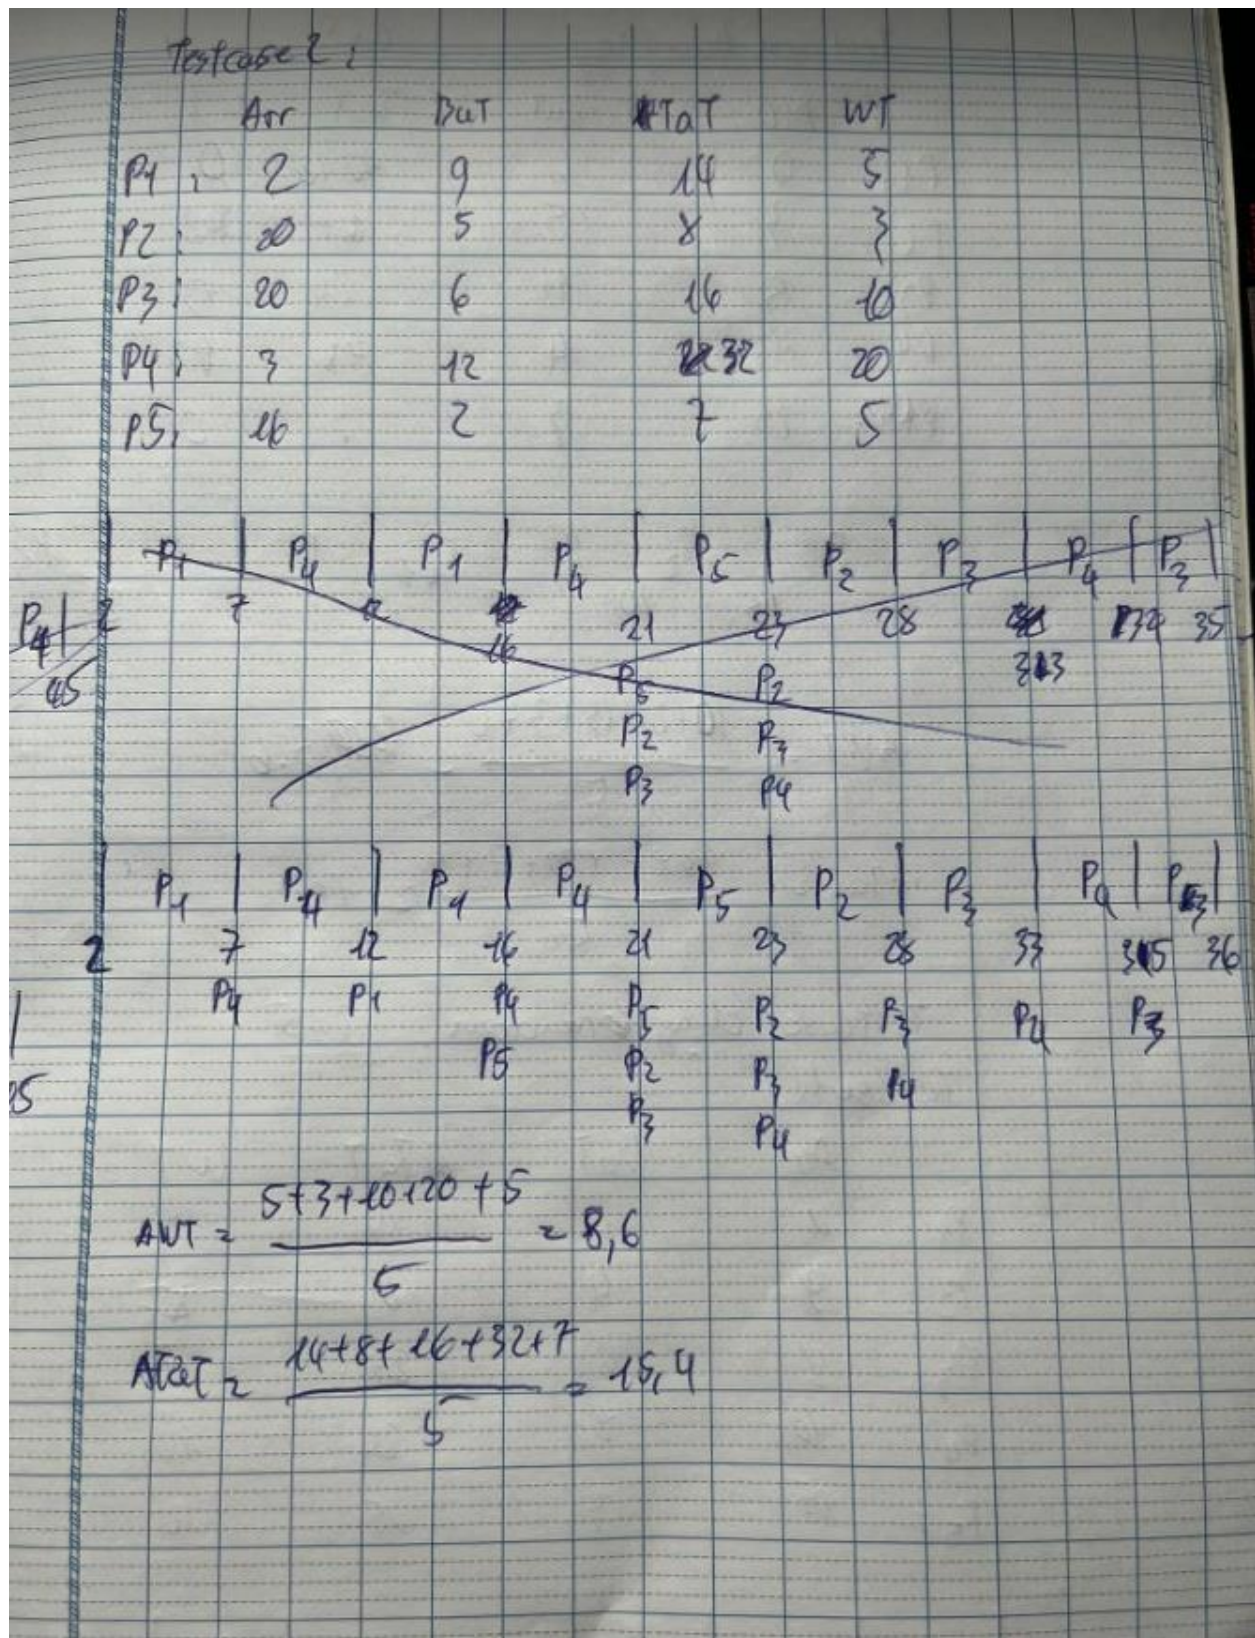 Testcase 2:
Arr BuT TaT WT
P1: 2 9 14 5
P2: 20 5 8 3
P3: 20 6 16 10
P4: 3 12 32 20
P5: 16 2 7 5
P1 P4 P1 P4 P5 P2 P3 P4 P3
P4 2 7 12 16 21 23 28 33 35
45 P5 P2
P2 P3
P3 P4
P1 P4 P1 P4 P5 P2 P3 P4 P3
2 7 12 16 21 23 28 33 35 36
P4 P1 P4 P5 P2 P3 P4 P3
P5 P2 P3 P4
P3 P4
AWT = 5+3+10+20+5 = 8,6
5
ATaT = 14+8+16+32+7 = 15,4
5